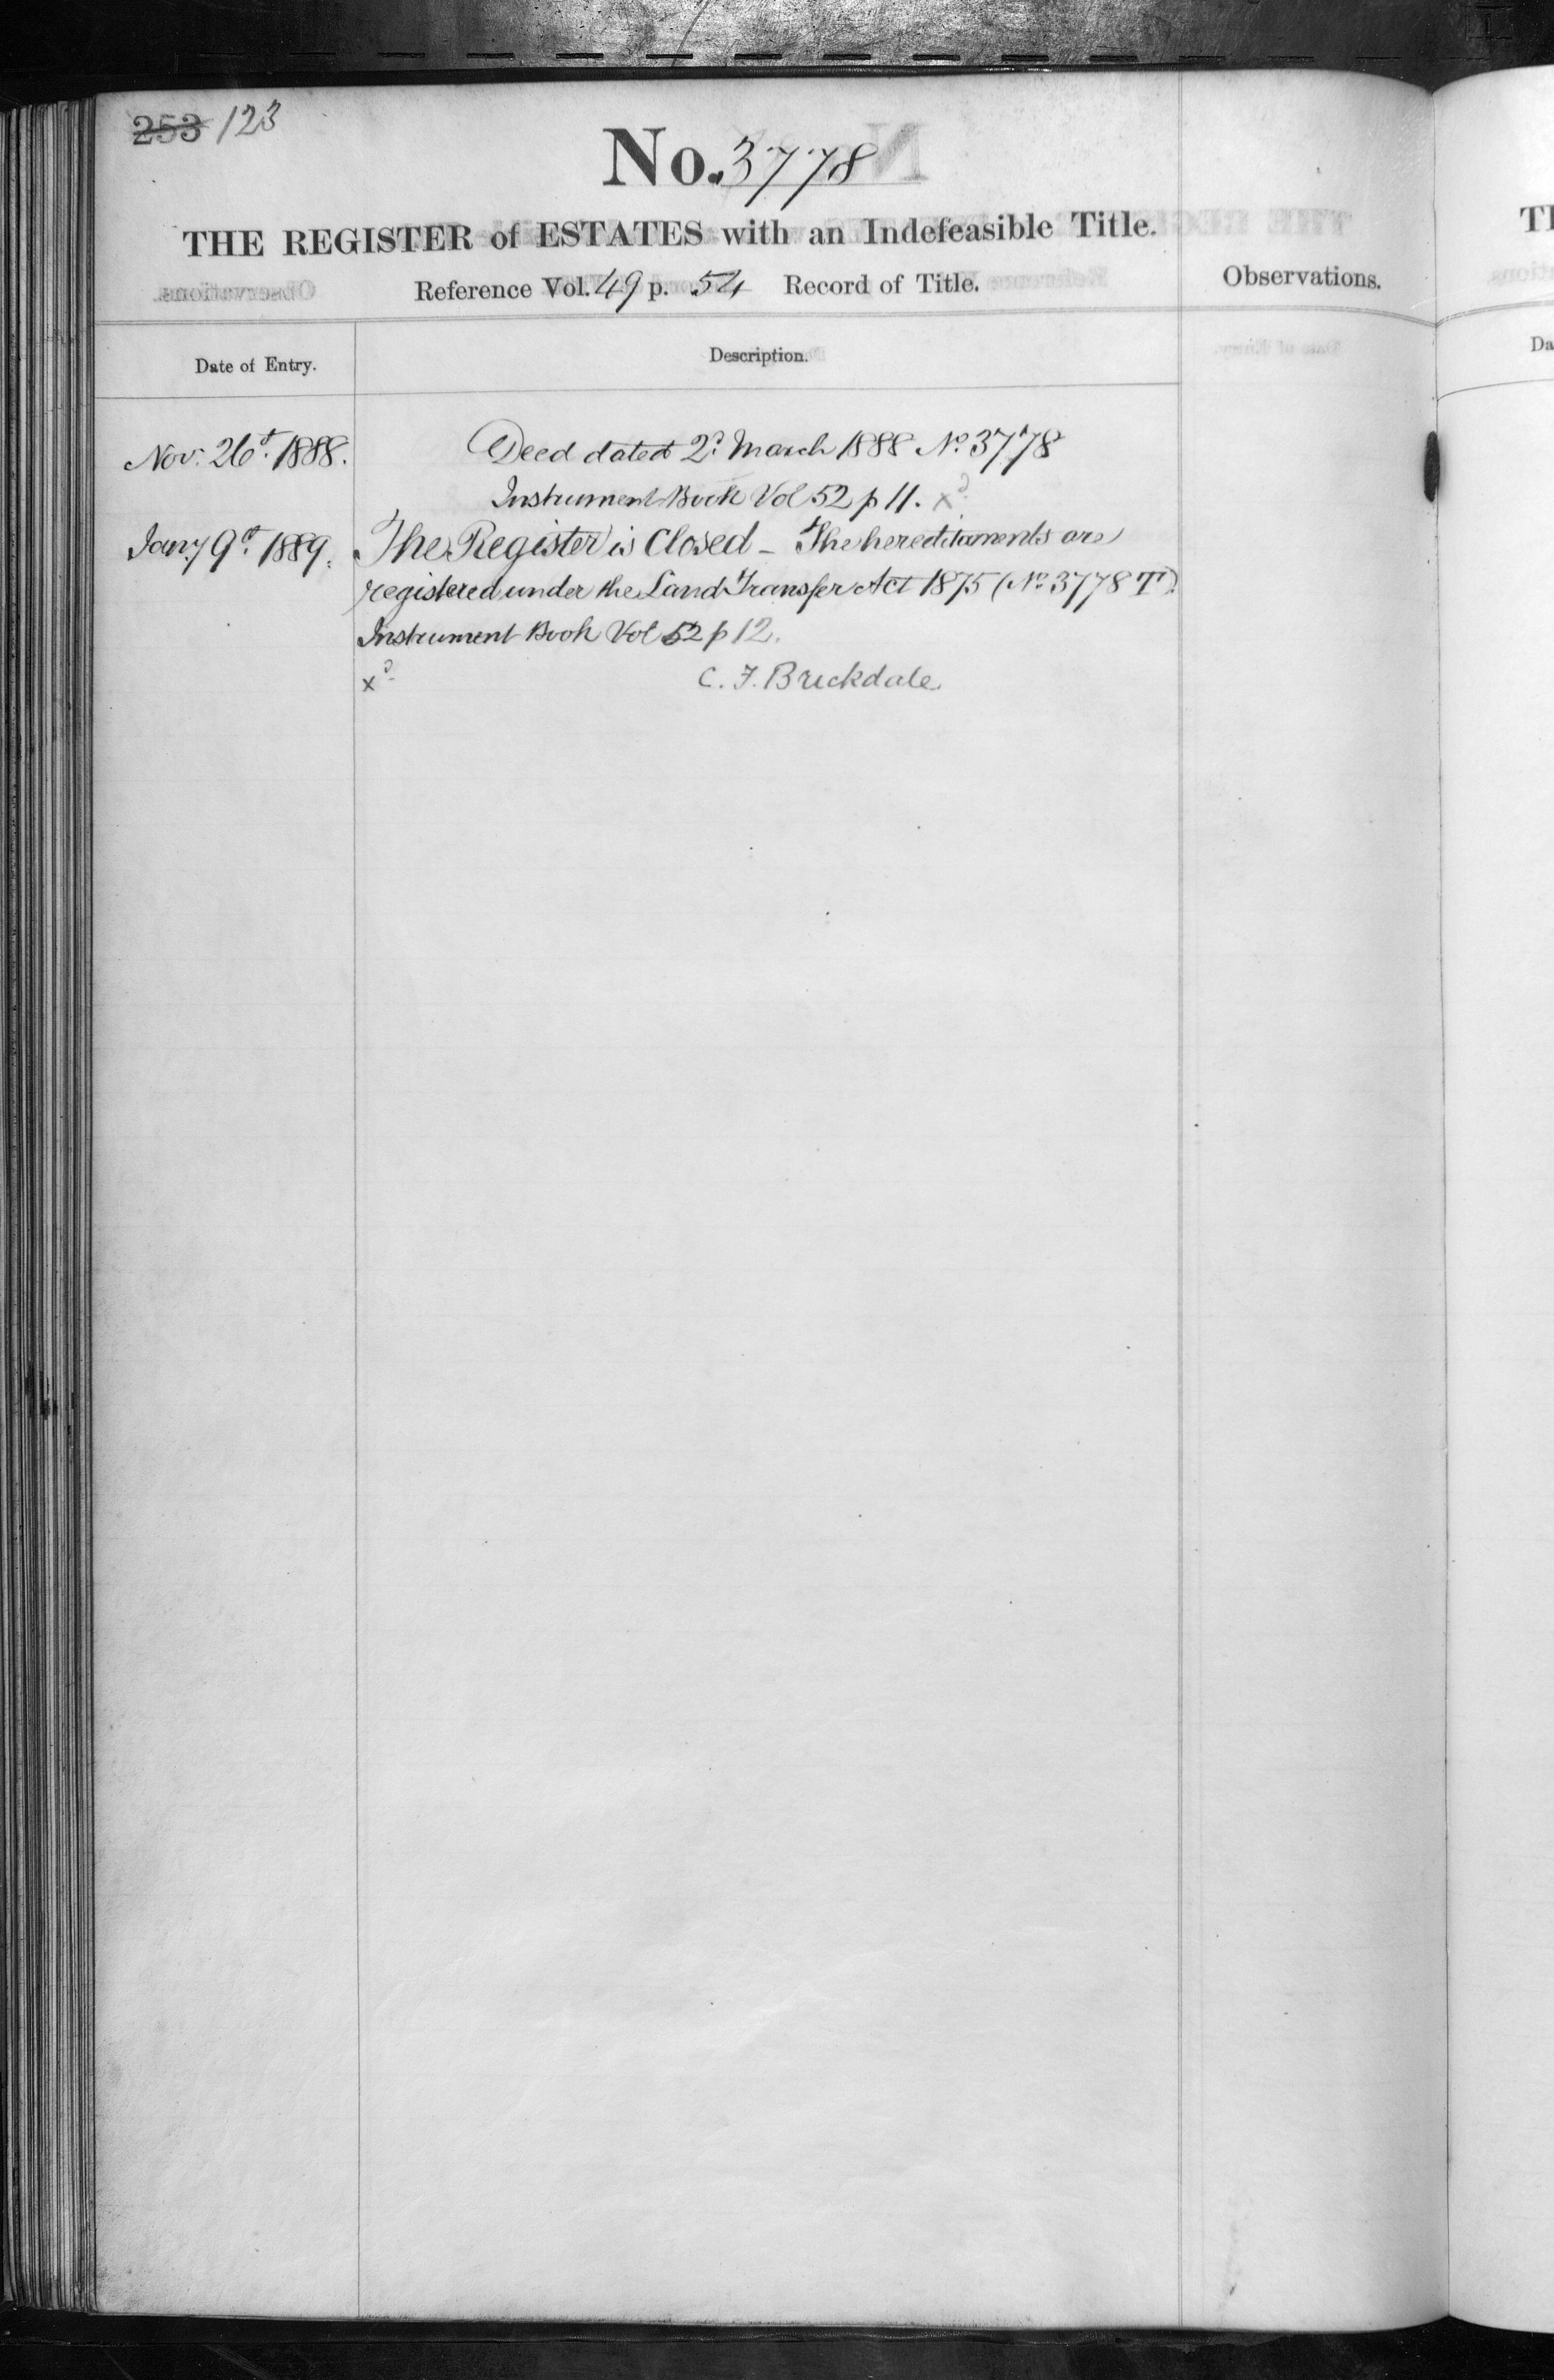 253 123
No. 3778
THE REGISTER of ESTATES with an Indefeasible Title.
Reference Vol. 49 p. 54 Record of Title.
Observations.
Date of Entry.
Description.
Nov. 26th. 1888.
Deed dated 2d. March 1888 No. 3778
Instrument Book Vol 52 p 11. xd.
Jany 9th 1889.
The Register is Closed - The hereditaments are
registered under the Land Transfer Act 1875 (No. 3778 T)
Instrument Book Vol 52 p 12.
xd.
C. F. Brickdale